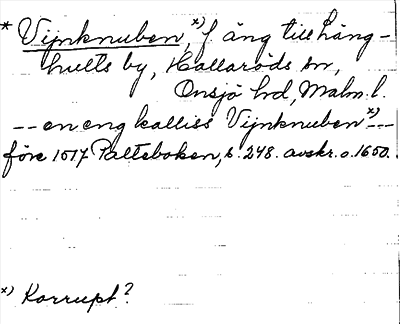 * Vijnknuben, x) f äng till häng-
hults by, Hallaröds sn,
Onsjö hd, Malm. l.
-- en eng kalliss Vijnknuben x) --
före 1517 Palteboken, s. 248. avskr. o. 1650.
x) Korrupt?